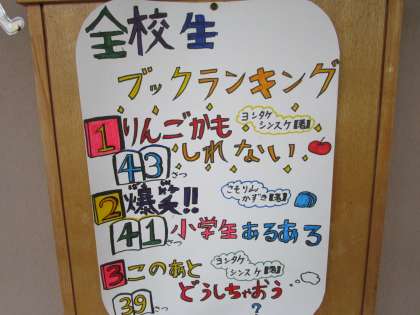 全校生
ブックランキング
1 りんごかも
しれない
ヨシタケ
シンスケ【著】
43
2 爆笑!!
こもりん
かずき【著】
41 小学生あるある
3 このあと
どうしちゃおう
ヨシタケ
シンスケ【著】
39
?